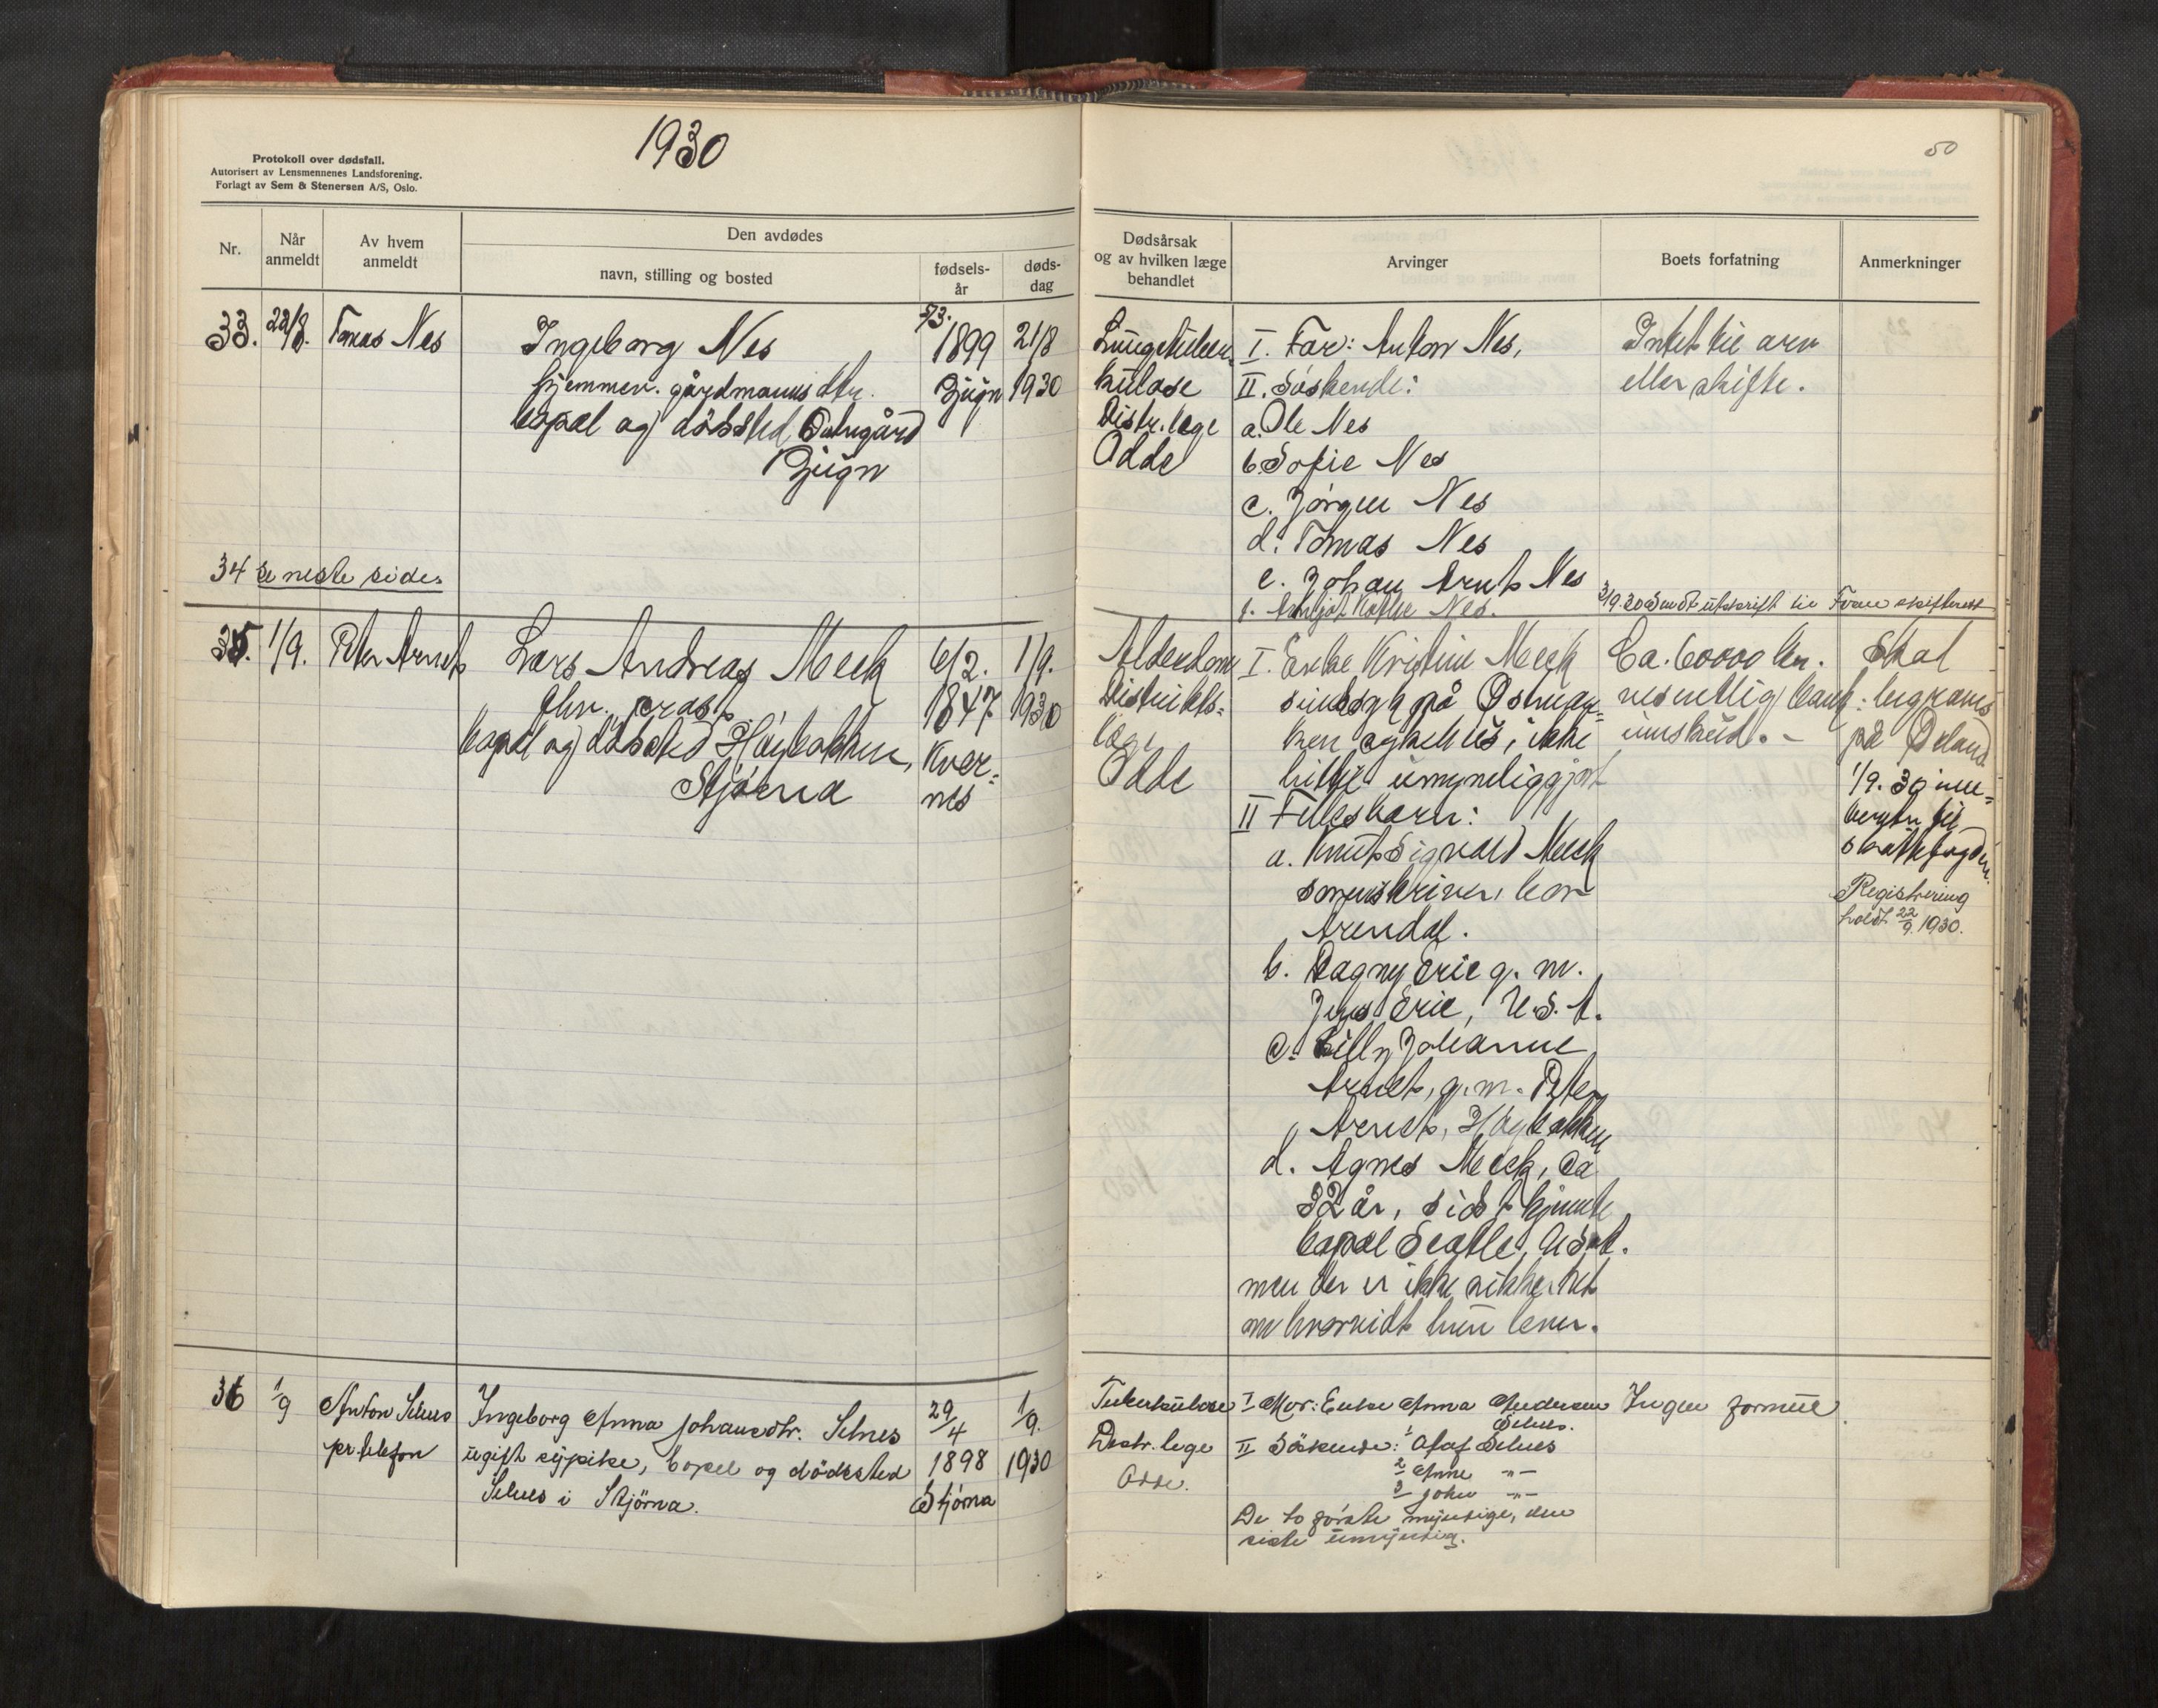 1930
Protokoll over dødsfall.
Autorisert av Lensmennenes Landsforening.
Forlagt av Sem & Stenersen A/S, Oslo.
50
Nr.
Når anmeldt
Av hvem anmeldt
Den avdødes
navn, stilling og bosted
fødsels-år
døds-dag
Dødsårsak og av hvilken læge behandlet
Arvinger
Boets forfatning
Anmerkninger
33. 22/8. Tomas Nes
Ingeborg Nes
hjemmev. gårdmanns dtr.
bopæl og dödssted
Bjugn
5/3.
1899
Bjugn
21/8
1930
Lungetuber-
kulose
Distr. læge
Odde
I. Far: Anton Nes,
II. Söskende:
a. Ole Nes
b. Sofie Nes
c. Jörgen Nes
d. Tomas Nes
e. Johan Arnt Nes
f. Nes.
Intet til arv
eller skifte.
34 se neste side.
3/9. 30 Sendt utskrift til Fosen skifterett
35. 1/9. Peter Arnets
Lars Andreas Meek
fhv. prost
bopæl og dödssted Höybakken,
Stjörna
6/2.
1847
Kver-
nes
1/9.
1930
Alderdom
Distrikts-
læge
Odde
I. Enke Kristine Meek
sinsyk på Østmar-
ken sykehus, ikke
hittil umyndiggjort
II Fellesbarn:
a. Knut Sigvald Meek
sorenskriver, bor
Arendal.
b. Dagny Erie g. m.
Jens Erie, U.S.A.
c. Lilly Johanne
Arnets, g. m. Peter
Arnets, Höybakken
d. Agnes Meek, ca
32 år, sidst kjente
bopæl Seatle, U.S.A.
men der er ikke sikkerhet
om hvorvidt hun lever.
Ca. 60000 kr.
vesentlig bank-
innskud. -
Skal
begraves
på Ørland
1/9. 30 inn-
beretn. til
skattefogden.
Registrering
holdt 22/9. 1930.
36 1/9 Anton Selnes
pr telefon
Ingeborg Anna Johansdtr. Selnes
ugift sypike, bopel og dödssted
Selnes i Stjörna.
29/4
1898
Stjörna
1/9.
1930
Tuberkulose
Distr. lege
Odde.
I Mor: Enke Anna Andersen
Selnes.
II Söskende: 1 Olaf Selnes
2 Anne -"-
3 John -"-
De to förste myndige, den
siste umyndig.
Ingen formue.